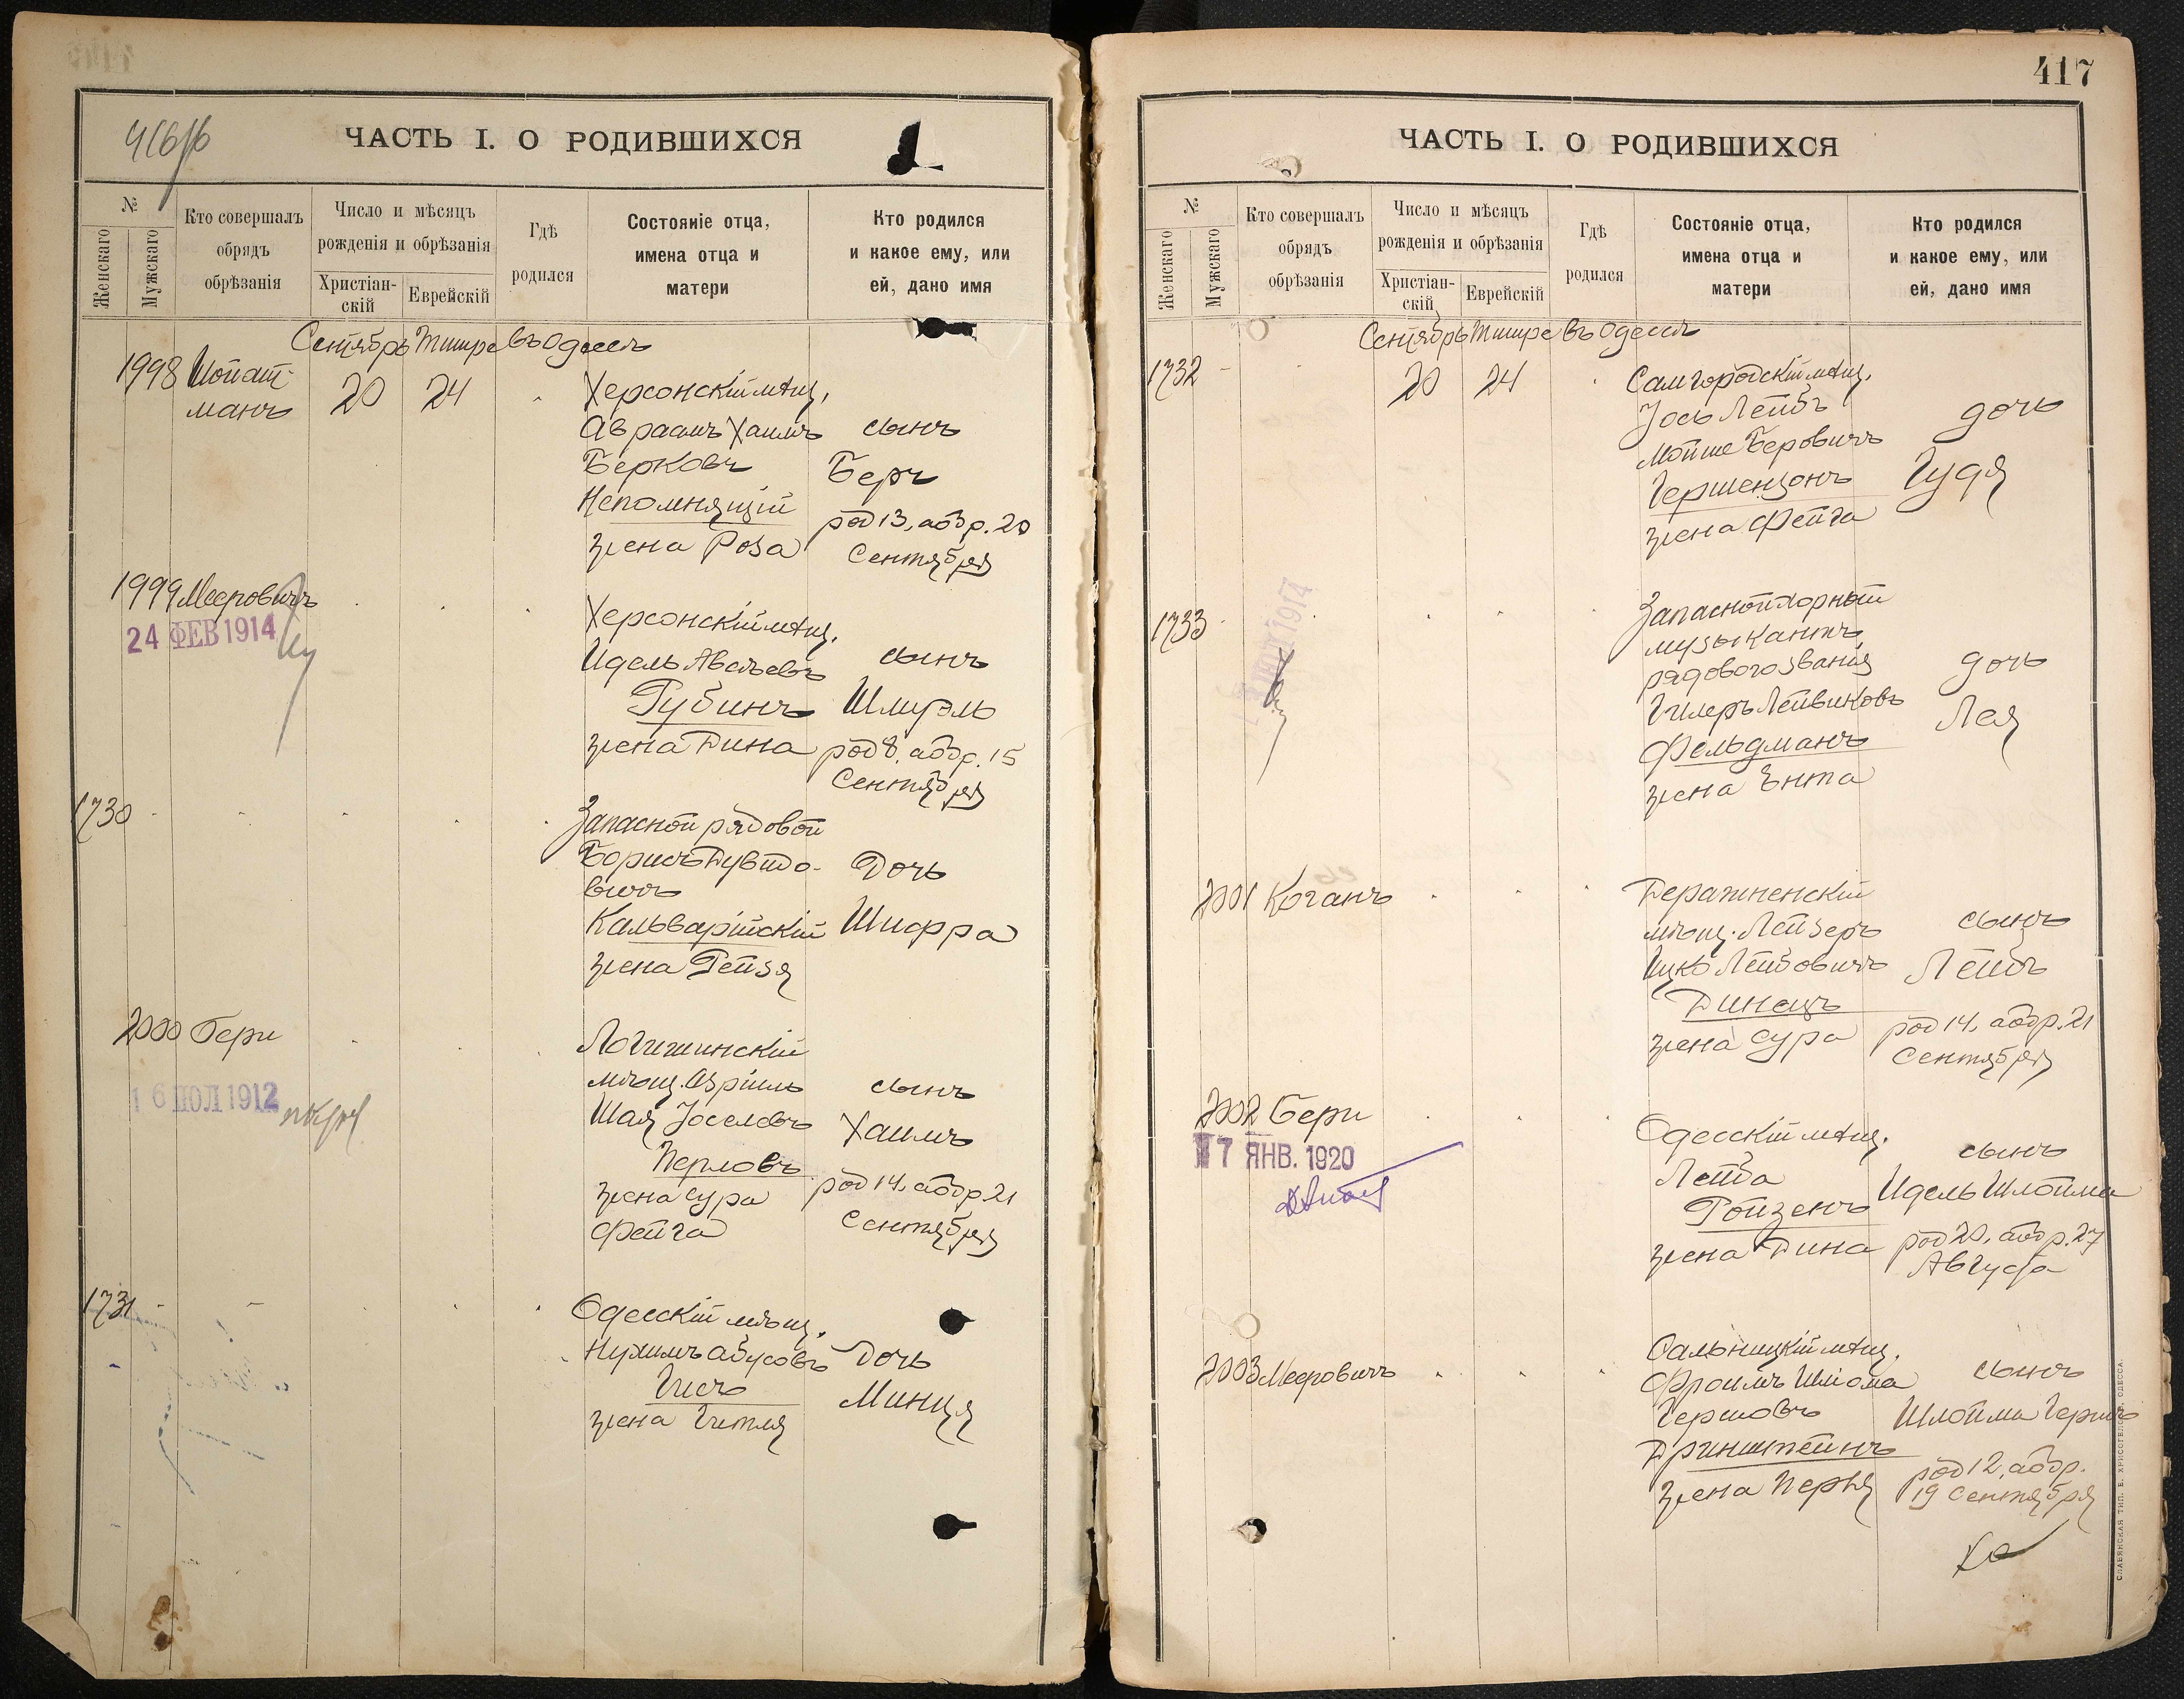 416/б
ЧАСТЬ I. О РОДИВШИХСЯ
№
Женскаго
Мужскаго
Кто совершалъ
обрядъ
обрѣзанія
Число и мѣсяцъ
рожденія и обрѣзанія
Христіан-
скій
Еврейскій
Гдѣ
родился
Состояніе отца,
имена отца и
матери
Кто родился
и какое ему, или
ей, дано имя
Сентябрь Тишре въ Одессѣ
1998 Шойхат-
манъ
20 24
Херсонскій мѣщ.
Авраамъ Хаимъ
Берковъ
Непомнящій
жена Роза
сынъ
Беръ
род 13, а обр. 20
Сентября
1999 Мееровичъ
24 ФЕВ 1914
Херсонскій мѣщ.
Идель Авелевъ
Рубинъ
жена Дина
сынъ
Шмуэль
род 8, а обр. 15
Сентября
1730
Запасной рядовой
Борисъ Дувидо-
вичъ
Кальварійскій
жена Рейзя
Дочь
Шифра
2000 Бери
16 ІЮЛ 1912
Логишинскій
мѣщ. Азріиль
Шая Іоселевъ
Перловъ
жена Сура
Фейга
сынъ
Хаимъ
род 14, а обр. 21
Сентября
1731
Одесскій мѣщ.
Нухимъ Абусовъ
Гисъ
жена Гитля
Дочь
Минця
417
ЧАСТЬ I. О РОДИВШИХСЯ
№
Женскаго
Мужскаго
Кто совершалъ
обрядъ
обрѣзанія
Число и мѣсяцъ
рожденія и обрѣзанія
Христіан-
скій
Еврейскій
Гдѣ
родился
Состояніе отца,
имена отца и
матери
Кто родился
и какое ему, или
ей, дано имя
Сентябрь Тишре въ Одессѣ
1732
20 24
Самгородскій мѣщ.
Іось Лейбъ
Мойше Беровичъ
Гершензонъ
жена Фейга
дочь
Гудя
1733
1914
Запасной хорный
музыкантъ
рядового званія
Гилеръ Лейвиковъ
Фельдманъ
жена Ента
дочь
Лея
2001 Коганъ
Деражненскій
мѣщ. Лейзеръ
Ицко Лейбовичъ
Динецъ
жена Сура
сынъ
Лейбъ
род 14, а обр. 21
Сентября
2002 Бери
7 ЯНВ. 1920
Одесскій мѣщ.
Лейба
Ройзенъ
жена Дина
сынъ
Идель Шлойма
род 20, а обр. 27
Августа
2003 Мееровичъ
Сальницкій мѣщ.
Фроимъ Шліома
Гершовъ
Бринштейнъ
жена Перья
сынъ
Шлойма Гершъ
род 12, а обр.
19 Сентября
СЛАВЯНСКАЯ ТИП. Е. ХРИСОГЕЛОСЪ, ОДЕССА.